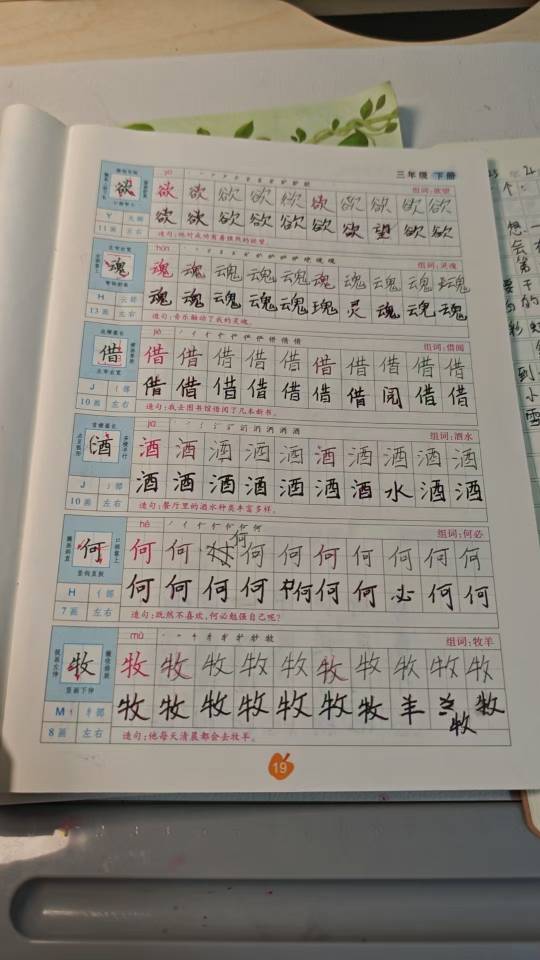 三年级 下册
yù
组词:欲望
欲 欲 欲 欲 欲 欲 欲 欲 欲 欲
欲 欲 欲 欲 欲 欲 欲 望 欲 欲
Y 欠部
11画 左右
造句:他对成功有着强烈的欲望。
hún
组词:灵魂
左窄右宽
魂 魂 魂 魂 魂 魂 魂 魂 魂 魂
魂 魂 魂 魂 魂 魂 灵 魂 魂 魂
H 云部
13画 左右
造句:音乐触动了我的灵魂。
jiè
组词:借阅
左窄右宽
借 借 借 借 借 借 借 借 借 借
借 借 借 借 借 借 借 阅 借 借
J 亻部
10画 左右
造句:我去图书馆借阅了几本新书。
jiǔ
组词:酒水
酒 酒 酒 酒 酒 酒 酒 酒 酒 酒
酒 酒 酒 酒 酒 酒 酒 水 酒 酒
J 氵部
10画 左右
造句:餐厅里的酒水种类丰富多样。
hé
组词:何必
何
何 何 何 何 何 何 何 何 何
何 何 何 何 何 何 何 必 何 何
竖钩直挺
H 亻部
7画 左右
造句:既然不喜欢,何必勉强自己呢?
mù
组词:牧羊
牧 牧 牧 牧 牧 牧 牧 牧 牧 牧
牧 牧 牧 牧 牧 牧 牧 羊 牧
牧
竖画下伸
M 牛部
8画 左右
造句:他每天清晨都会去牧羊。
19